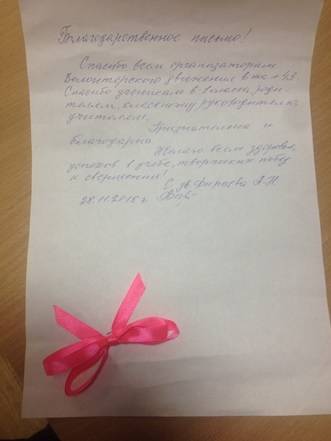 Благодарственное письмо!
Спасибо всем организаторам
Волонтерского движения в шк № 43
Спасибо ученикам 1 класса, роди
телям, классному руководителю,
учителям.
Признательна и
благодарна
Желаю всем здоровья,
успехов в учебе, творческих побед
и свершений!
С ув. А.Н.
28.11.2015 г.